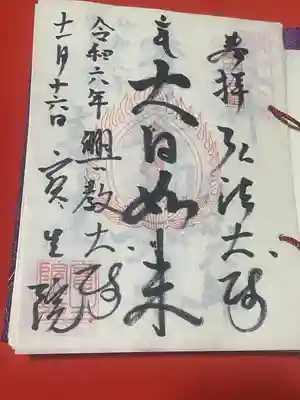 奉拝 弘法大師
大日如来
令和六年 興教大師
十一月十六日 宝生院